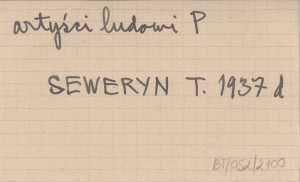 artyści ludowi P
SEWERYN T. 1937 d
BT/052/2100